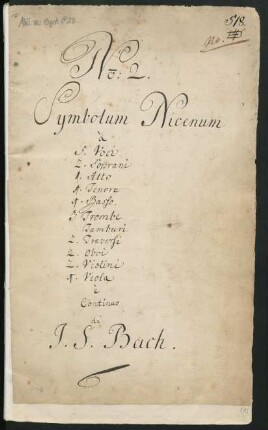 518.
No: 2.
Symbolum Nicenum
à
5. Voci
2. Soprani
1. Alto
1. Tenore
1. Basso.
3. Trombe
Tamburi
2. Traversi
2. Oboi
2. Violini
1. Viola
e
Continuo
di
J. S. Bach.